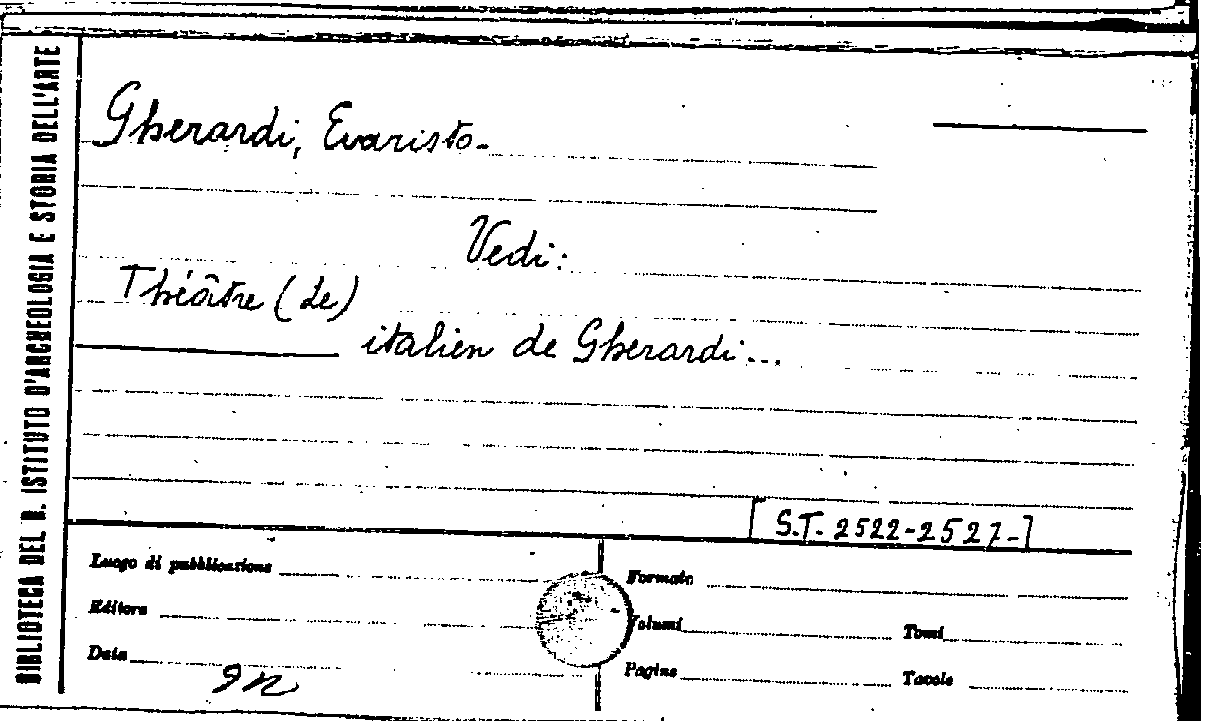 BIBLIOTECA DEL R. ISTITUTO D'ARCHEOLOGIA E STORIA DELL'ARTE
Gherardi, Evaristo.
Vedi:
Théâtre (le)
italien de Gherardi...
[S.T. 2522-2527-]
Luogo di pubblicazione
Formato
Editore
Volumi
Tomi
Data
Pagine
Tavole